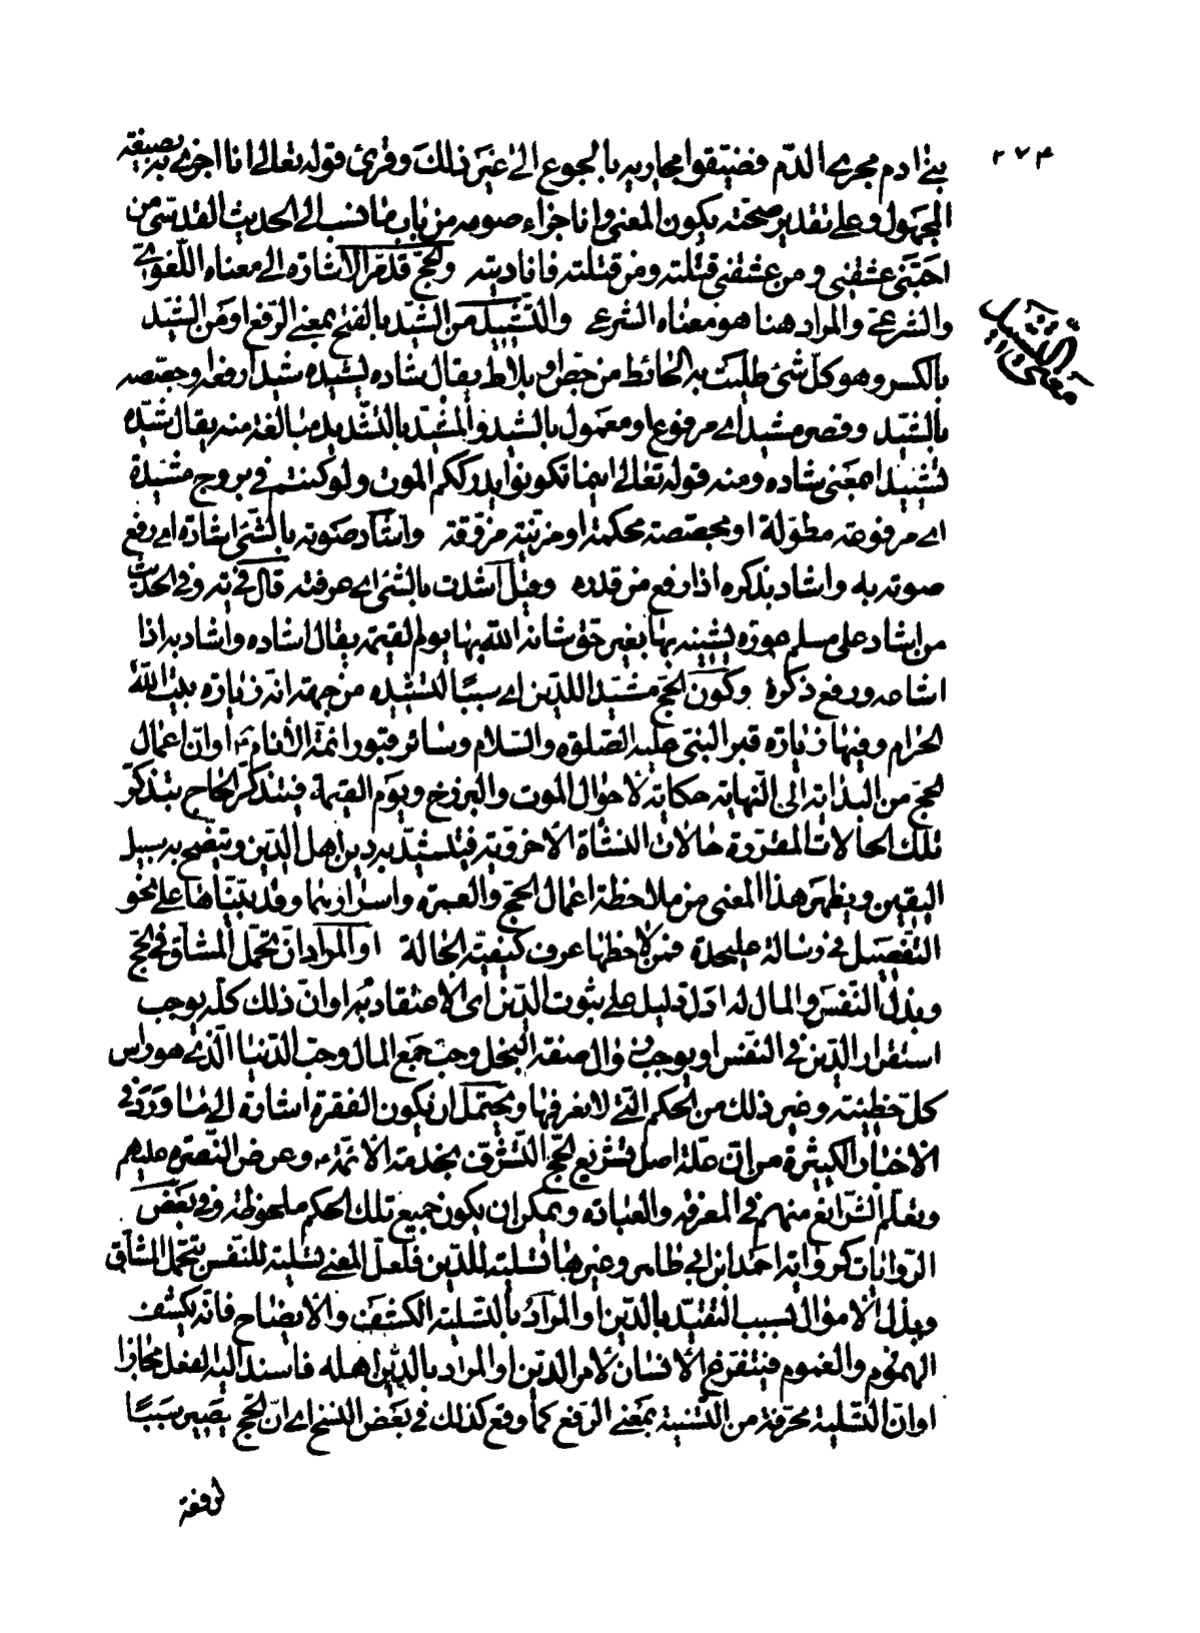 ٢٧٤
بنى ادم مجرى الدّم فضيّقوا مجاريه بالجوع الى غير ذلك وقرئ قوله تعالى انا اجزى به بصيغة
المجهول وعلى تقدير صحّته يكون المعنى وانا جزاء صومه من باب ما نسب الى الحديث القدسى من
احبّنى عشقنى ومن عشقنى قتلته ومن قتلته فانا ديته والحجّ قد مرّ الاشارة الى معناه اللّغوى
والشرعىّ والمراد هنا هو معناه الشرعى والتّشييد من الشّيد بالفتح بمعنى الرّفع او من الشيد
معانى التشييد
بالكسر وهو كلّ شئ طليت به الحائط من جصّ او بلاط يقال شاده يشيده شيدا رفعه وجصّصه
بالشّيد وقصر مشيد اى مرفوع او معمول بالشيد والمشيّد بالتشديد مبالغة منه يقال شيّده
تشييدا بمعنى شاده ومنه قوله تعالى اينما تكونوا يدرككم الموت ولو كنتم فى بروج مشيّدة
اى مرفوعة مطوّلة او مجصّصة محكمة او مزيّنة مزوّقة واشاد صوته بالشّئ اشادة اى رفع
صوته به واشاد بذكره اذا رفع من قدره وقيل اشدت بالشئ اى عرفته قال فى يه وفى الحديث
من اشاد على مسلم عورة يشينه بها بغير حقّ شانه اللّه بها يوم القيمة يقال اشاده واشاد به اذا
اشاعه ورفع ذكره وكون الحجّ مشيّد اللدّين اى سببا لتشيّده من جهة انّه زيارة بيت اللّه
الحرام وفيها زيارة قبر النبىّ عليه الصّلوة والسّلام وسائر قبور ائمّة الأنام ع او انّ اعمال
الحجّ من البداية الى النّهاية حكاية لاحوال الموت والبرزخ ويوم القيمة فيتذكّر الحاج بتذكّر
تلك الحالات المقرّرة حالات النّشأة الاخرويّة فيتشيّد به دين اهل الدّين ويتّضح به سبيل
اليقين ويظهر هذا المعنى من ملاحظة اعمال الحجّ والعمرة واسرارهما وقد بيّنّاها على نحو
التّفصيل فى رسالة عليحدة فمن لاحظها عرف كيفيّة الحالة او المراد انّ تحمّل المشاقّ فى الحجّ
وبذل النّفس والمال له ادلّ دليل على ثبوت الدّين اى الاعتقاد به او انّ ذلك كلّه يوجب
استقرار الدّين فى النّفس او يوجب زوال صفة البخل وحبّ جمع المال وحبّ الدّنيا الّذى هو راس
كلّ خطيئة وغير ذلك من الحكم الّتى لا نعرفها ويحتمل ان يكون الفقرة اشارة الى ما ورد فى
الاخبار الكثيرة من انّ علّة اصل تشريع الحجّ التّشرّف بخدمة الائمّة ع وعرض النّصرة عليهم
وتعلّم الشّرايع منهم فى المعرفة والعبادة ويمكن ان يكون جميع تلك الحكم ملحوظة وفى بعض
الرّوايات كرواية احمد ابن ابى طاهر وغيرها تسلية للدّين فلعلّ المعنى تسلية للنّفس بتحمّل المشاقّ
وبذل الاموال بسبب التّقيّد بالدّين او المراد بالتّسلية الكشف والايضاح فانّه يكشف
الهموم والغموم فيتفرّغ الانسان لامر الدّين او المراد بالدّين اهله فاسند اليه الفعل مجازا
او انّ التّسلية محرّفة من التّسنية بمعنى الرّفع كما وقع كذلك فى بعض النسخ اى انّ الحجّ يصير سببًا
لرفعة